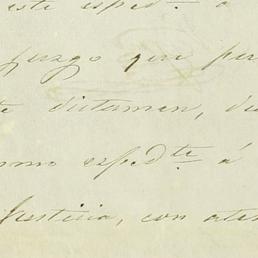 este exped.te á
juzgo que per
te dictamen, de
smo exped.te á
Justicia, con aten